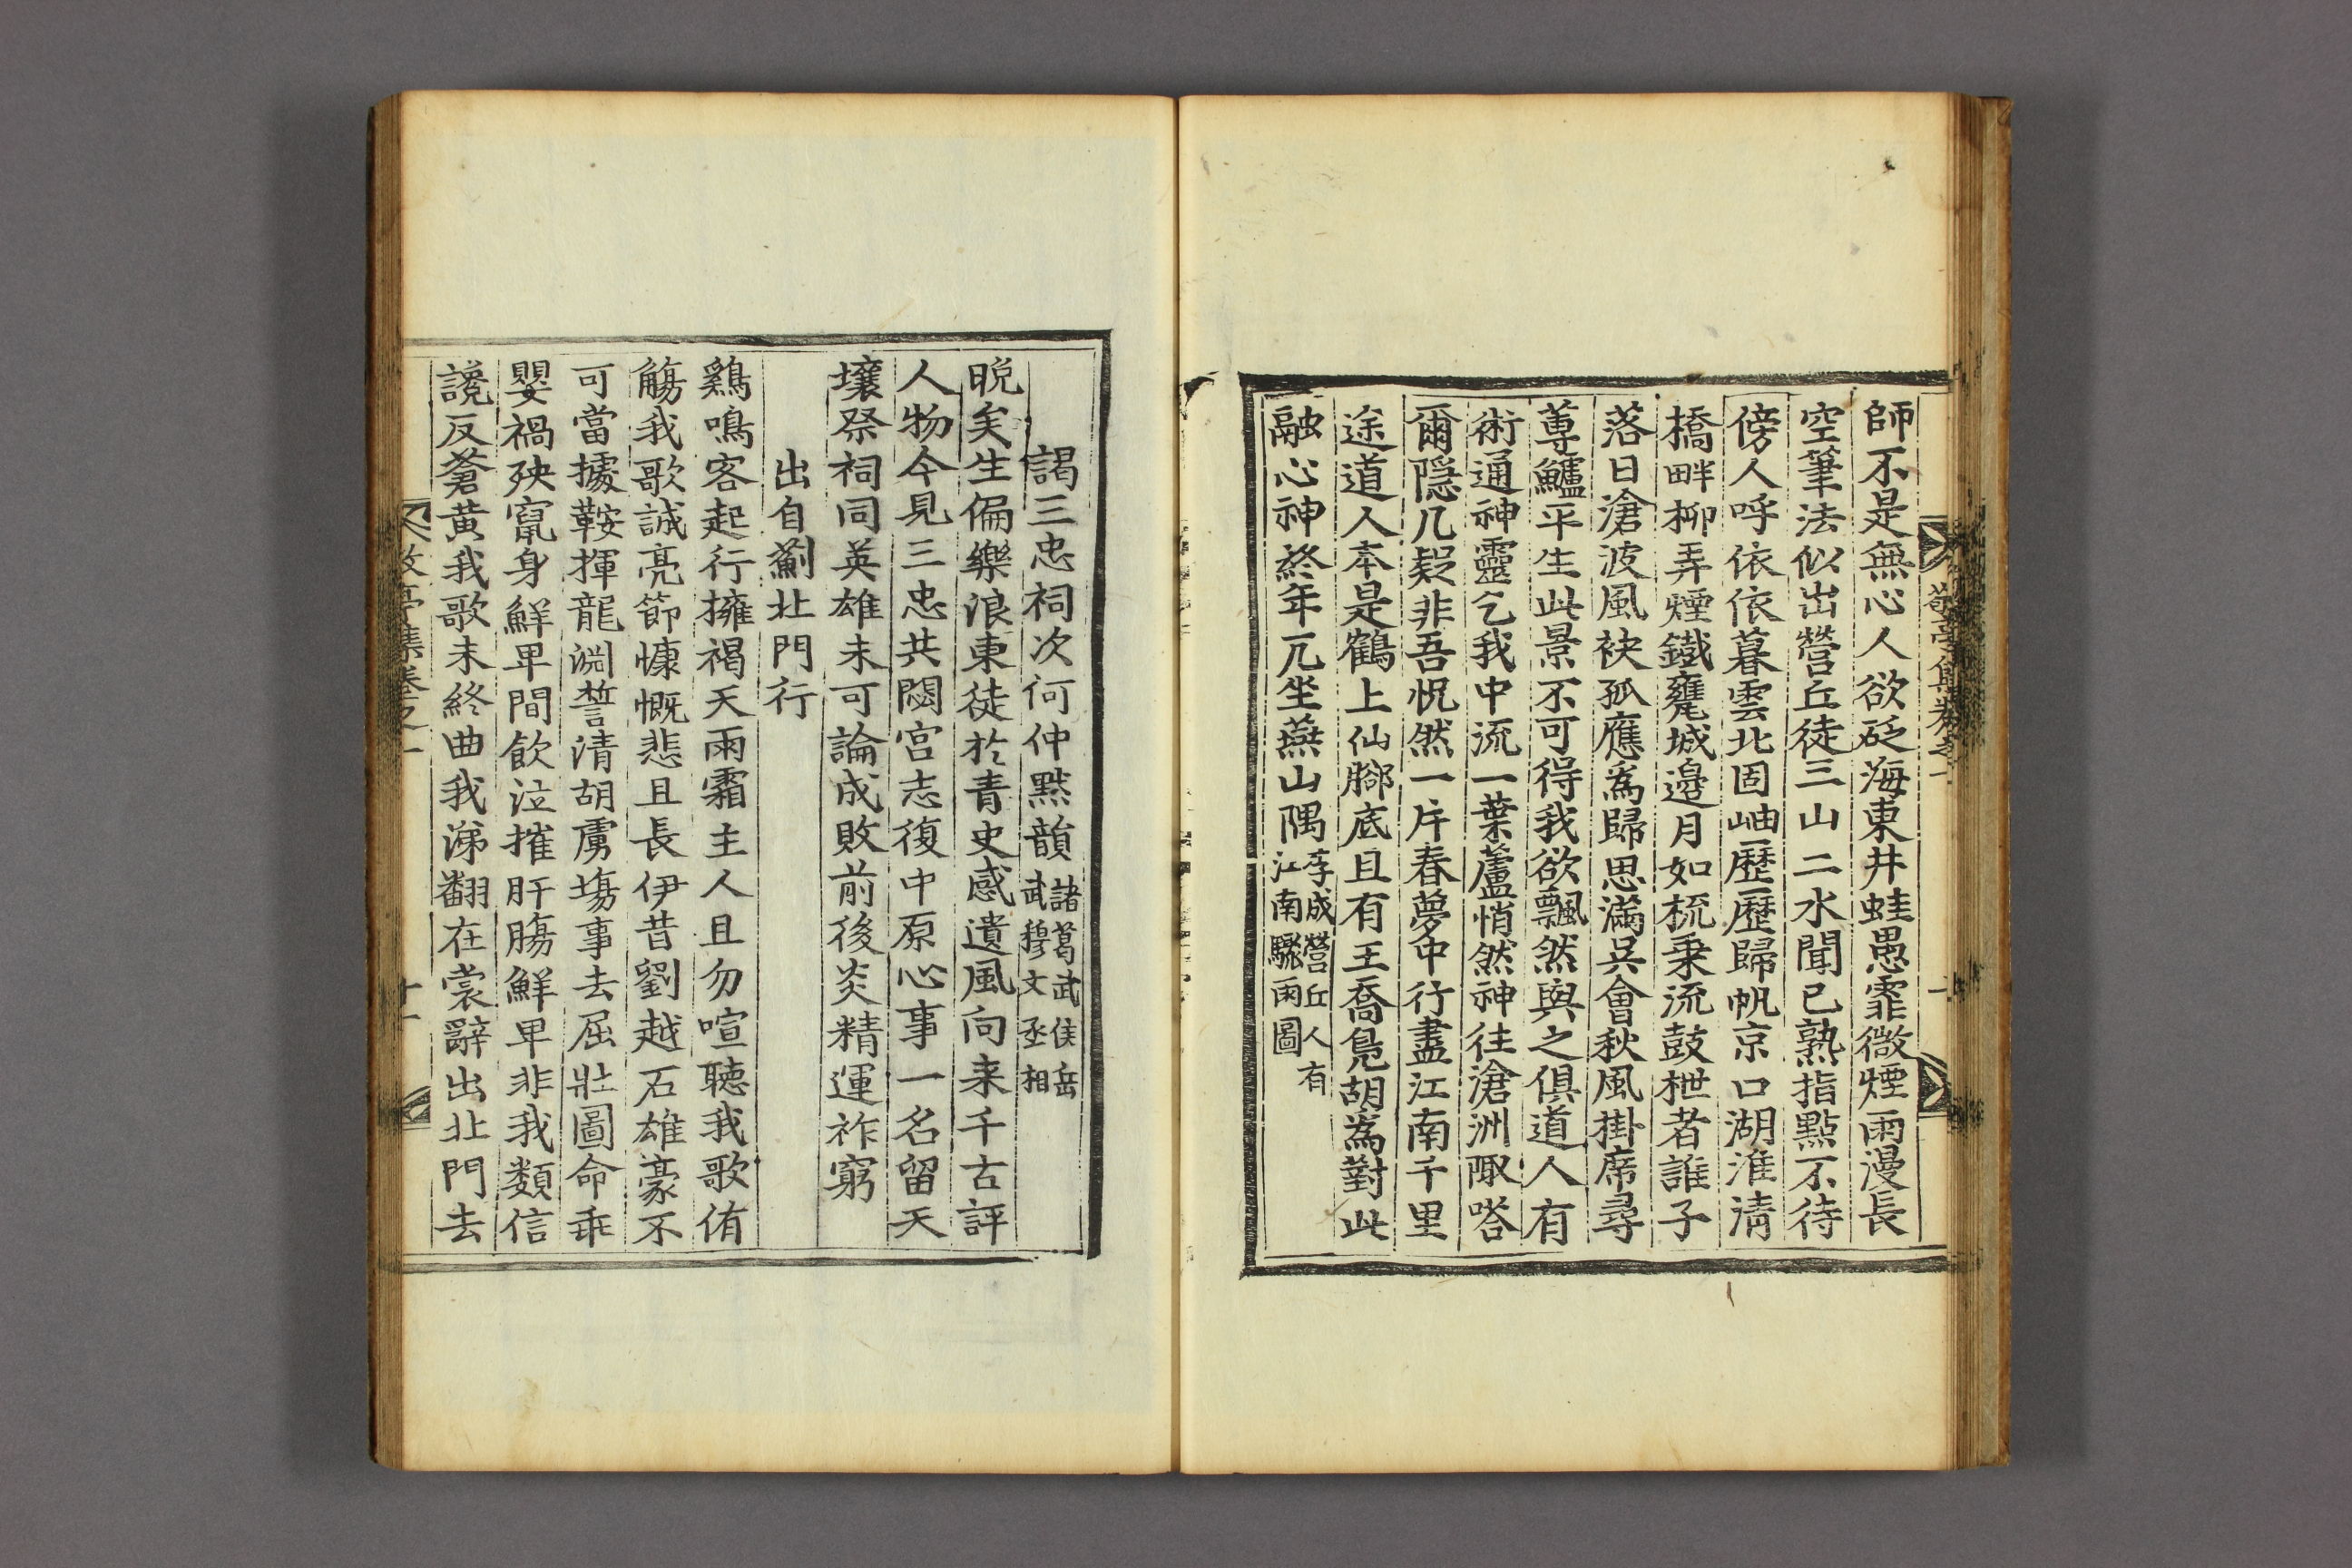 敬亭集卷之一
師不是無心人欲砭海東井蛙愚霏微煙雨漫長
空筆法似出營丘徒三山二水聞已熟指點不待
傍人呼依依暮雲北固岫歷歷歸帆京口湖淮淸
橋畔柳弄煙鐵甕城邊月如梳乗流鼓枻者誰子
落日滄波風袂孤應爲歸思滿吳會秋風掛席尋
蓴鱸平生此景不可得我欲飄然與之俱道人有
術通神靈乞我中流一葉蘆悄然神往滄洲陬嗒
爾隱几疑非吾怳然一片春夢中行盡江南千里
途道人本是鶴上仙腳底且有王喬鳧胡爲對此
融心神終年兀坐燕山隅李成營丘人有江南驟雨圖
謁三忠祠次何仲默韻諸葛武侯岳武穆文丞相
晩矣生偏樂浪東徒於青史感遺風向来千古評
人物今見三忠共閟宮志復中原心事一名留天
壤祭祠同英雄未可論成敗前後炎精運祚窮
出自薊北門行
鷄鳴客起行擁褐天雨霜主人且勿喧聽我歌侑
觴我歌誠亮節慷慨悲且長伊昔劉越石雄豪不
可當據鞍揮龍淵誓清胡虜場事去屈壯圖命乖
嬰禍殃竄身鮮卑間飮泣摧肝膓鮮卑非我類信
讒反蒼黄我歌未終曲我涕翻在裳辭出北門去
敬亭集卷之一
十一